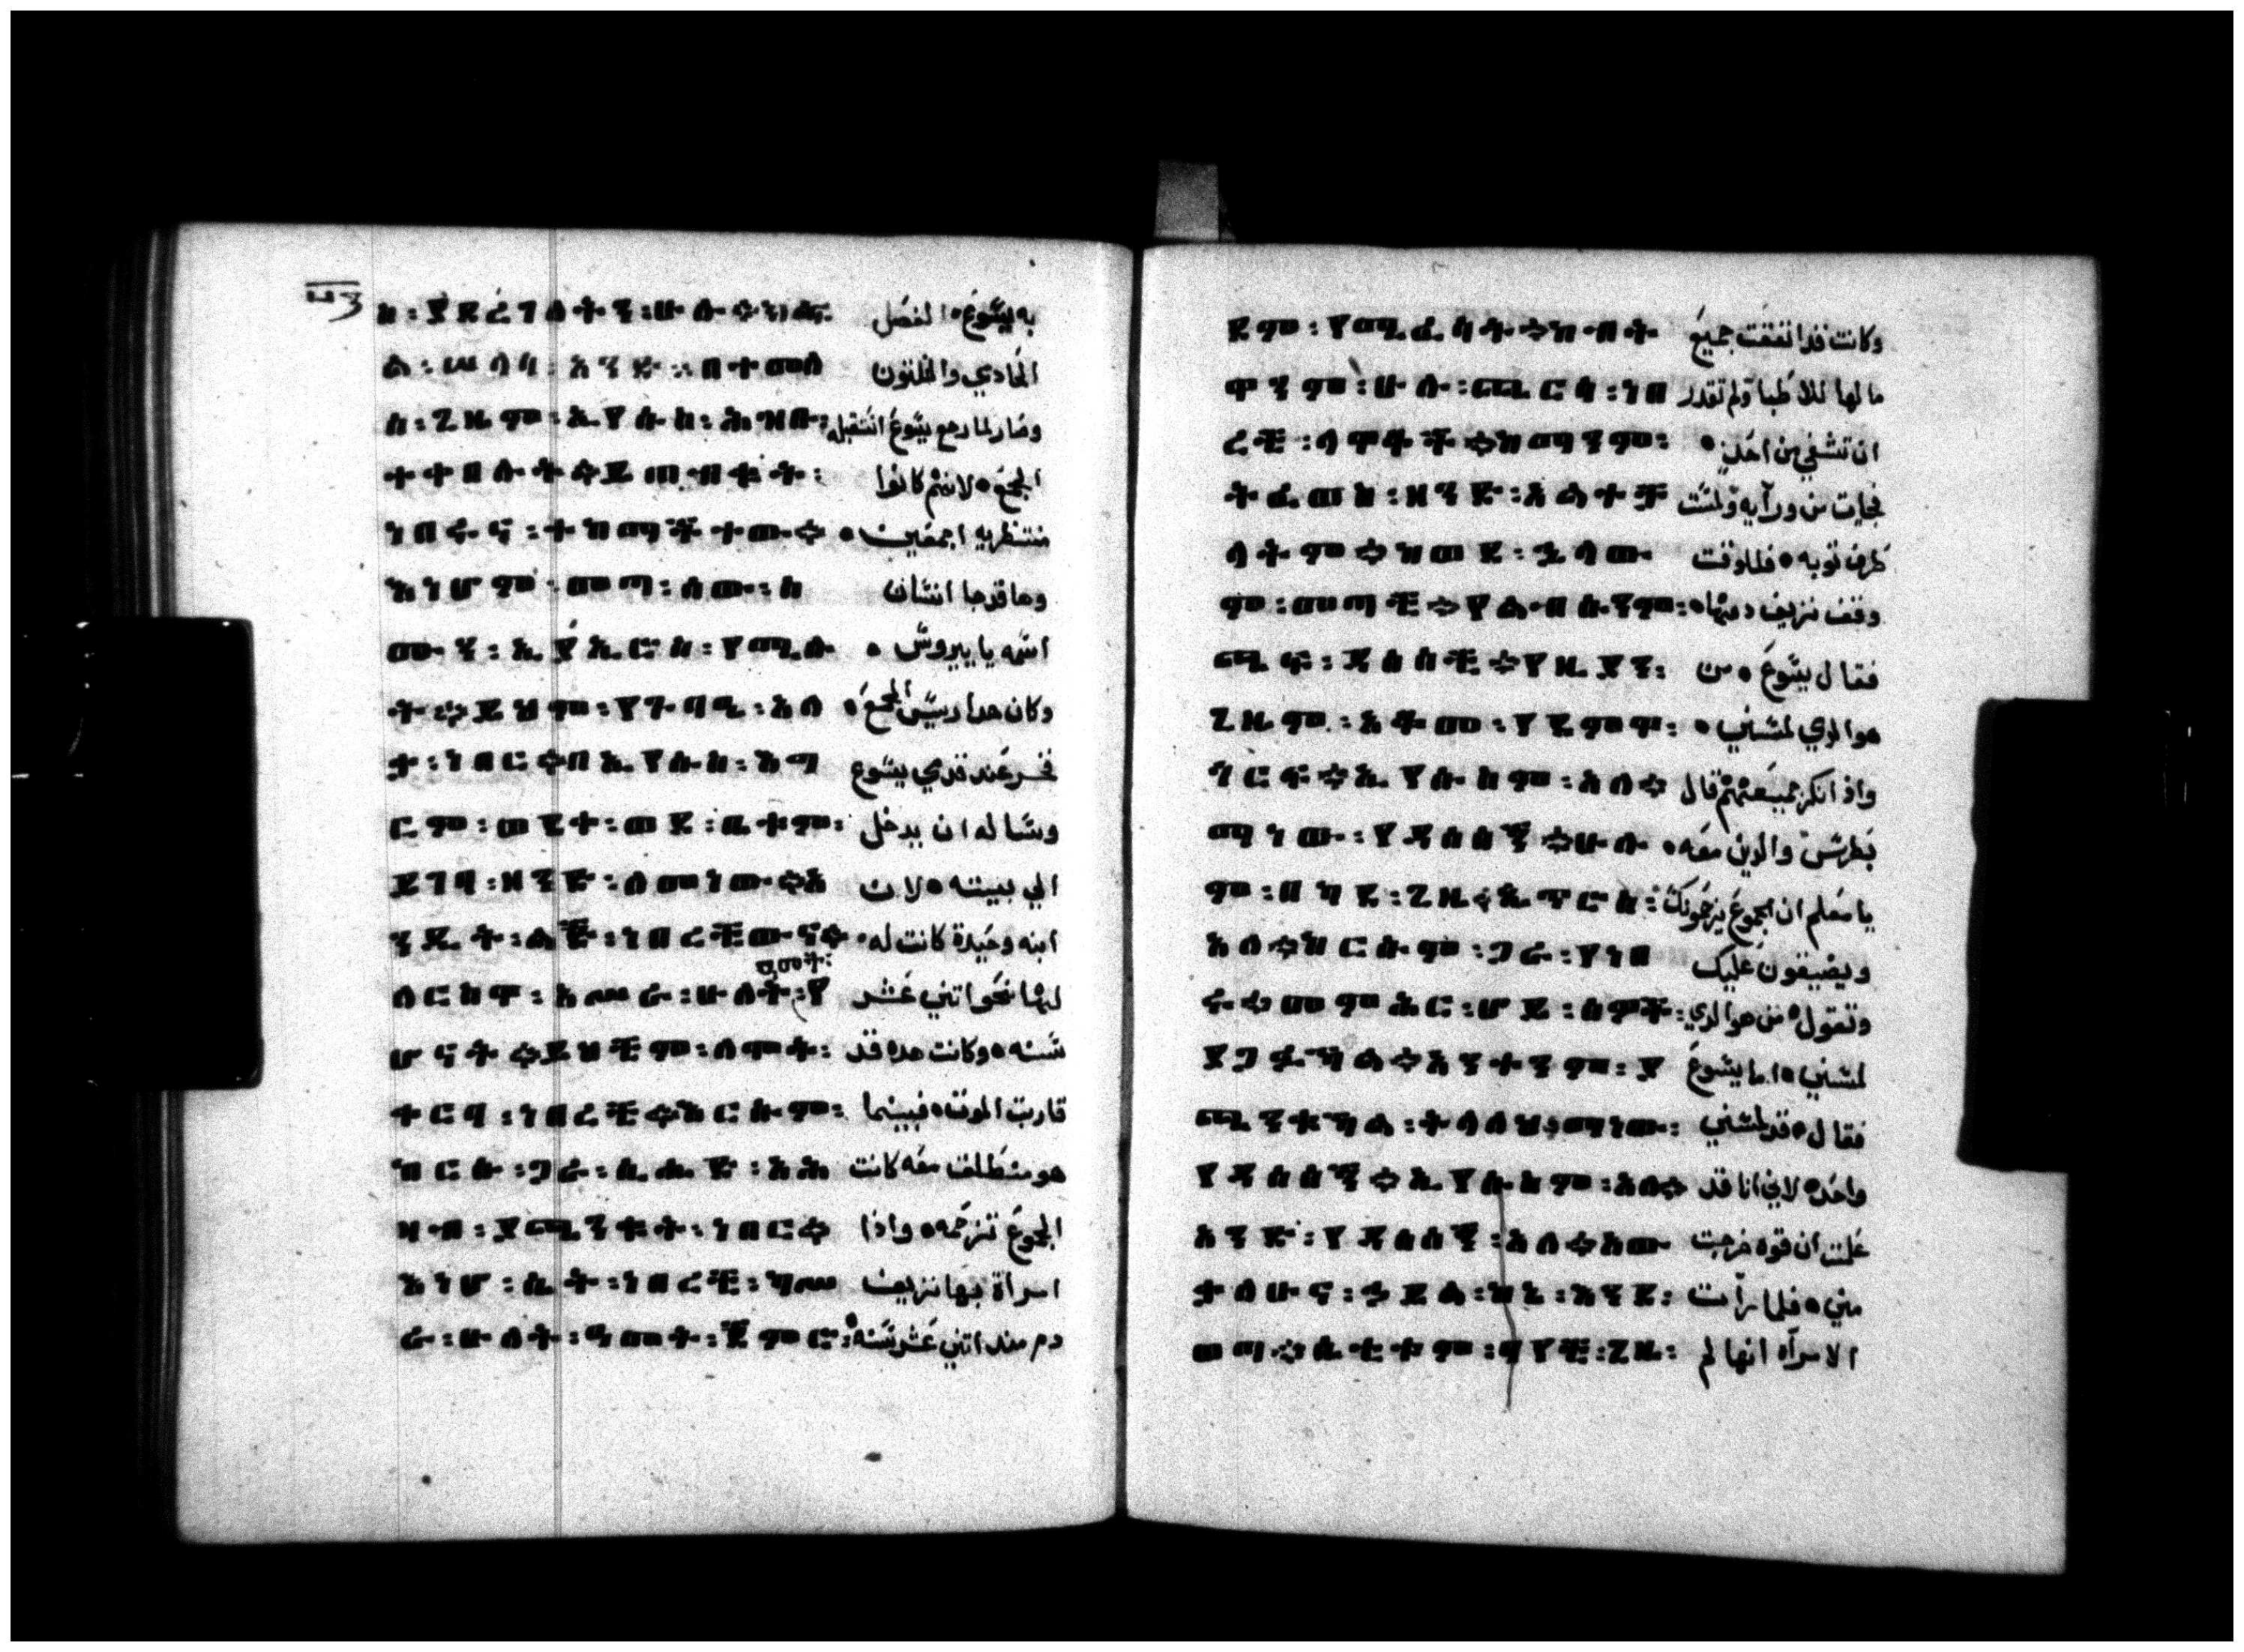 ፵፫
ስ : ያደረገለትን : ሁሉ ። ክፋል ፡ به يسوع ٥ الفصل
ል : ሠላሳ : አንድ ። በተመለ الحادي والثلثون
ሰ : ጊዜም : ኢየሱስ : ሕዝቡ ፡ وصار لما رجع يسوع استقبله
ተቀበሉት ። ይጠብቁት ፡ الجمع ٥ لانهم كانوا
ነበሩና : ተስማምተው ። منتظريه اجمعين ٥
እነሆም : መጣ : ሰው : ስ وها قد جا انسان
ሙን : ኢያኢሮስ : የሚሉ اسمه يا ييروس ٥
ት ። ይህም : የጉባዔ : አለ وكان هدا ريس المجمع ٥
ቃ : ነበር ። በኢየሱስ : እግ فخر عند قدمي يسوع
ርም : ወደቀ : ወደ : ቤቱም ፡ وساله ان يدخل
ይገባ : ዘንድ : ለመነው ። አ الي بيته ٥ لان
ንዲት : ልጅ : ነበረችውና ። ابنه وحيدة كانت له
ዓመት ፡
ለርስዋ : አሥራ : ሁለት : የ لها نحو اتني عشر
ሆናት ። ይህችም : ለሞት ፡ سنه ٥ وكانت هده قد
ቀርባ : ነበረች ። እርሱም ፡ قاربت الموت ٥ فبينما
ከርሱ : ጋራ : ሲሔድ : እሕ هو منطلق معه كانت
ዝቡ : ያጨንቁት : ነበር ። الجموع تزحمه ٥ واذا
እነሆ : ሴት : ነበረች : ካሥ امراة بها نزيف
ራ : ሁለት : ዓመት : ጅምር ፡ دم مند اتني عشر سنه ٥
ደም : የሚፈስሳት ። ከብት وكانت قد انفقت جميع
ዋንም : ሁሉ : ጨርሳ : ነበ ما لها للاطبا ولم تقدر
ረች : ለዋቆች ። ከማንም ፡ ان تشفي من احد ٥
ትፈወስ : ዘንድ : አልተቻ فجات من ورآيه ولمست
ላትም ። ከወደ : ኋላው طرف توبه ٥ فللوقت
ም : መጣች ። የልብሱንም ፡ وقف نزيف دمها ٥
ጨፍ : ዳሰሰች ። የዚያን ፡ فقال يسوع ٥ من
ጊዜም : አቆመ : የደምዋ ፡ هو الدي لمسني ٥
ነርፍ ። ኢየሱስም : አለ ። واذ انكر جميعهم قال
ማነው : የዳሰሰኝ ። ሁሉ بطرس والدين معه ٥
ም : በካደ : ጊዜ ። ጴጥሮስ ፡ يا معلم ان الجموع يزحموك
አለ ። ከርሱም : ጋራ : የነበ ويضيقون عليك
ሩ ። መምእር : ሆይ : ሰዎች ፡ وتقول ٥ من هو الدي
ያጋፉኻል ። አንተንም : ያ لمسني ٥ اما يسوع
ጨንቁኻል : ትላለህ ፡ ማነው ፡ فقال ٥ قد لمسني
የዳሰሰኝ ። ኢየሱስም : አለ ። واحد ٥ لاني انا قد
አንድ : የዳሰሰኝ : አለ ። አው علمت ان قوه خرجت
ቃለሁና : ኃይል : ከኔ : እንደ ፡ مني ٥ فلما رأت
ወጣ ። ሴቲቱም : ባየች : ጊዜ ፡ الامرآه انها لم